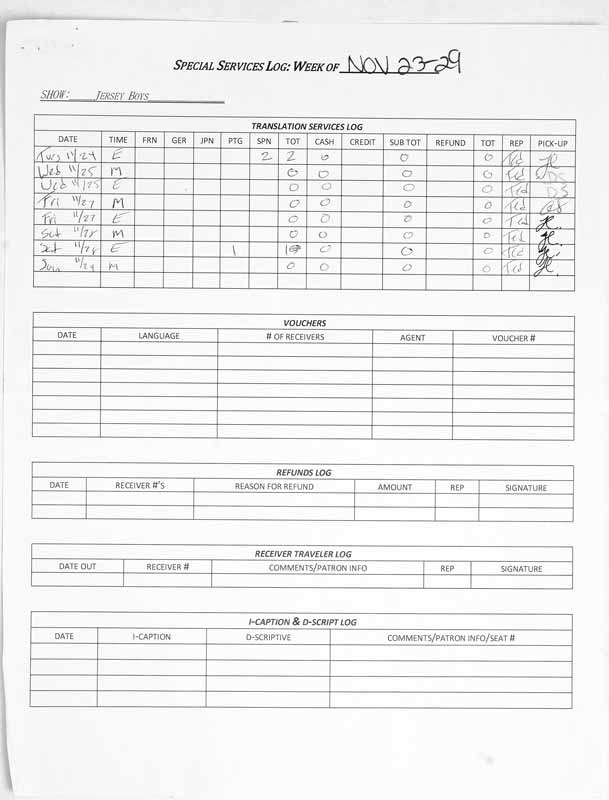 SPECIAL SERVICES LOG: WEEK OF NOV 23-29
SHOW: JERSEY BOYS
TRANSLATION SERVICES LOG
DATE TIME FRN GER JPN PTG SPN TOT CASH CREDIT SUB TOT REFUND TOT REP PICK-UP
Tues 11/24 E 2 2 0 0 0 Ted JL
Wed 11/25 M 0 0 0 0 Ted DS
Wed 11/25 E 0 0 0 0 Ted DS
Fri 11/27 M 0 0 0 0 Ted
Fri 11/27 E 0 0 0 0 Ted JL
Sat 11/28 M 0 0 0 0 Ted JL
Sat 11/28 E 1 1 0 0 0 Ted
Sun 11/29 M 0 0 0 0 Ted JL
VOUCHERS
DATE LANGUAGE # OF RECEIVERS AGENT VOUCHER #
REFUNDS LOG
DATE RECEIVER #'S REASON FOR REFUND AMOUNT REP SIGNATURE
RECEIVER TRAVELER LOG
DATE OUT RECEIVER # COMMENTS/PATRON INFO REP SIGNATURE
I-CAPTION & D-SCRIPT LOG
DATE I-CAPTION D-SCRIPTIVE COMMENTS/PATRON INFO/SEAT #